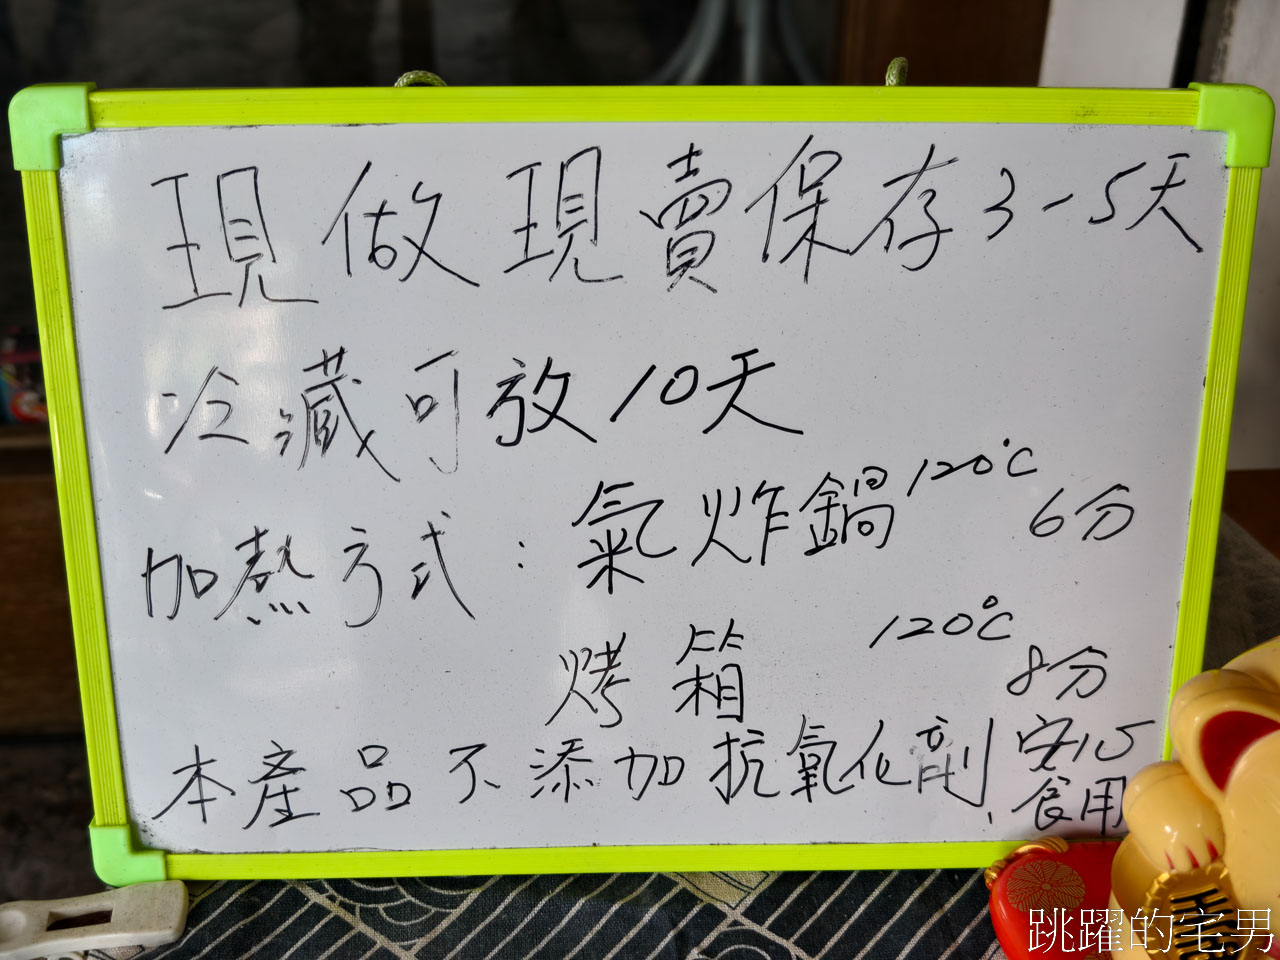 現做現賣保存3-5天
冷藏可放10天
加熱方式：氣炸鍋120°C 6分
烤箱 120°C 8分
本產品不添加抗氧化劑!安心食用
跳躍的宅男